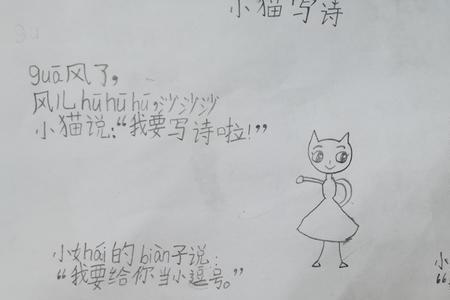 小猫写诗
guā风了，
风儿hūhūhū，沙沙沙
小猫说：“我要写诗啦！”
小女hái的biàn子说：
“我要给你当小逗号。”
小
“